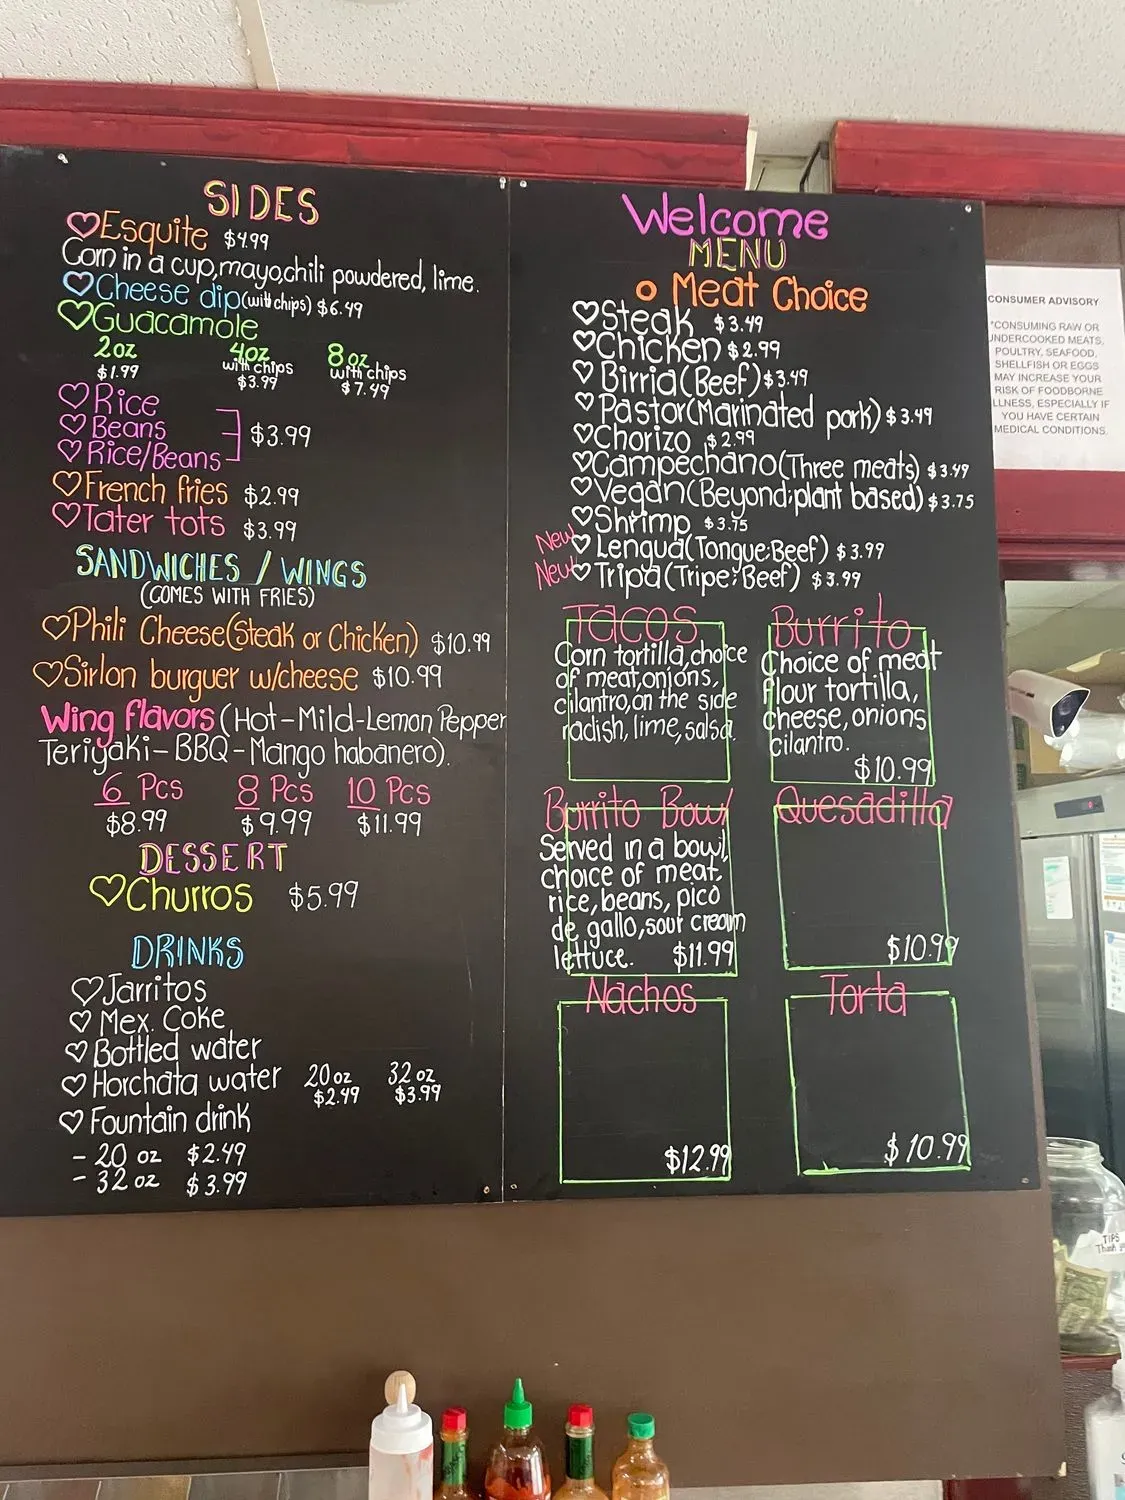 SIDES
Esquite $4.99
Corn in a cup, mayo, chili powdered, lime.
Cheese dip (with chips) $6.49
Guacamole
2oz 4oz 8oz
with chips with chips
$1.99 $3.99 $7.49
Rice
Beans $3.99
Rice/Beans
French fries $2.99
Tater tots $3.99
SANDWICHES / WINGS
(COMES WITH FRIES)
Phili Cheese (Steak or Chicken) $10.99
Sirlon burguer w/cheese $10.99
Wing flavors (Hot-Mild-Lemon Pepper
Teriyaki-BBQ-Mango habanero).
6 Pcs 8 Pcs 10 Pcs
$8.99 $9.99 $11.99
DESSERT
Churros $5.99
DRINKS
Jarritos
Mex. Coke
Bottled water
Horchata water 20oz 32oz
$2.49 $3.99
Fountain drink
- 20 oz $2.49
- 32 oz $3.99
Welcome
MENU
Meat Choice
Steak $3.49
Chicken $2.99
Birria (Beef) $3.49
Pastor (Marinated pork) $3.49
Chorizo $2.99
Campechano (Three meats) $3.49
Vegan (Beyond: plant based) $3.75
Shrimp $3.75
New Lengua (Tongue: Beef) $3.99
New! Tripa (Tripe: Beef) $3.99
TACOS
Corn tortilla, choice
of meat, onions,
cilantro, on the side
radish, lime, salsa.
Burrito
Choice of meat
flour tortilla,
cheese, onions
cilantro.
$10.99
Burrito Bowl
Served in a bowl,
choice of meat,
rice, beans, pico
de gallo, sour cream
lettuce. $11.99
Quesadilla
$10.99
Nachos
$12.99
Torta
$10.99
CONSUMER ADVISORY
"CONSUMING RAW OR
UNDERCOOKED MEATS,
POULTRY, SEAFOOD,
SHELLFISH OR EGGS
MAY INCREASE YOUR
RISK OF FOODBORNE
ILLNESS, ESPECIALLY IF
YOU HAVE CERTAIN
MEDICAL CONDITIONS.
TIPS
Thank